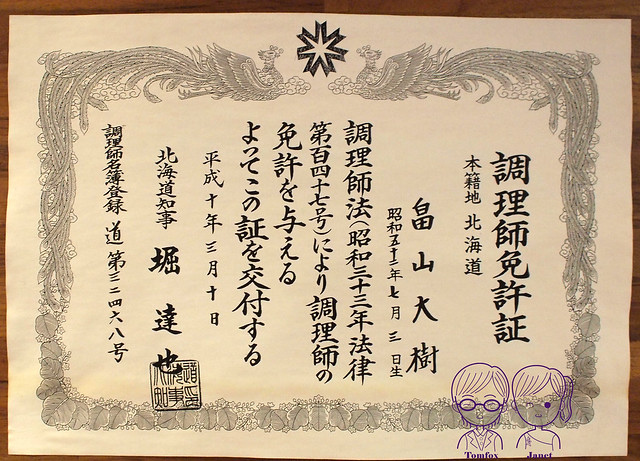 調理師免許証
本籍地 北海道
畠山大樹
昭和五十二年七月三日生
調理師法(昭和三十三年法律
第百四十七号)により調理師の
免許を与える
よってこの証を交付する
平成十年三月十日
北海道知事 堀達也
調理師名簿登録 道第三二四六八号
Tomfox
Janet